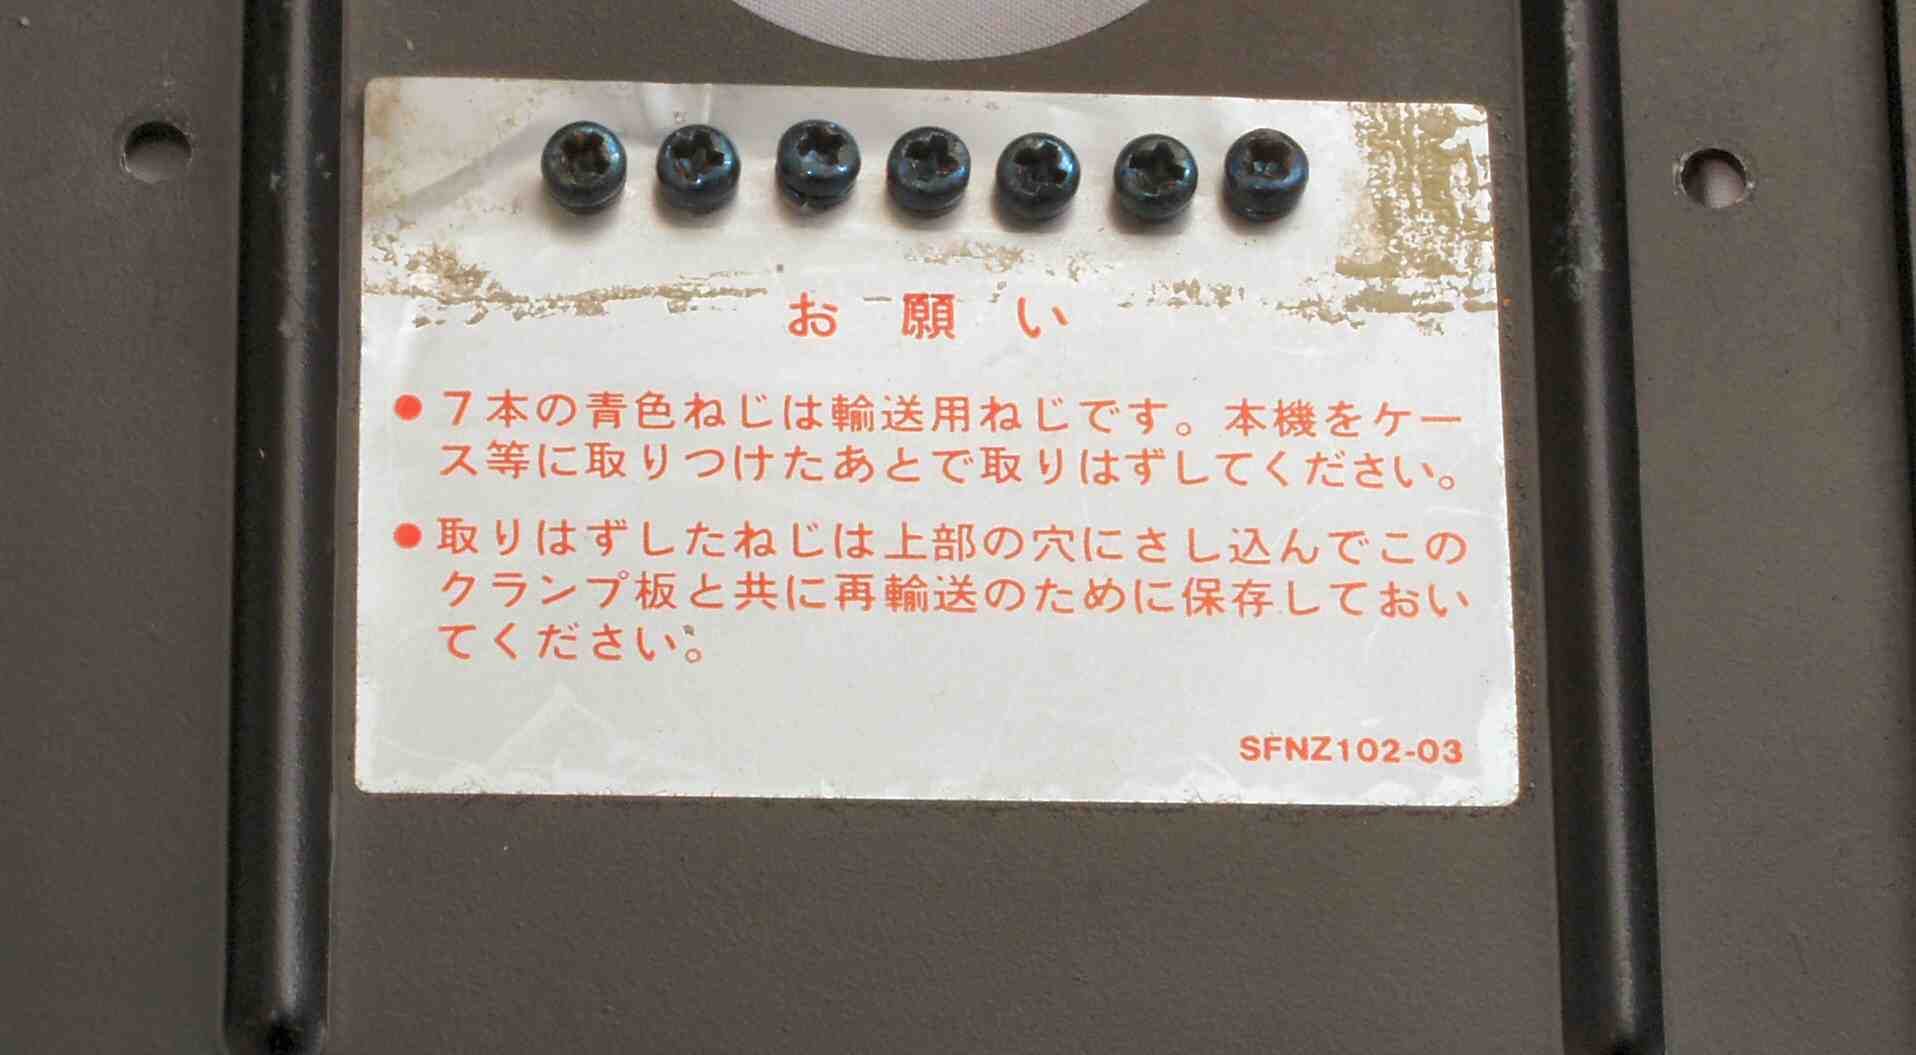 お願い
●7本の青色ねじは輸送用ねじです。本機をケー
ス等に取りつけたあとで取りはずしてください。
●取りはずしたねじは上部の穴にさし込んでこの
クランプ板と共に再輸送のために保存しておい
てください。
SFNZ102-03